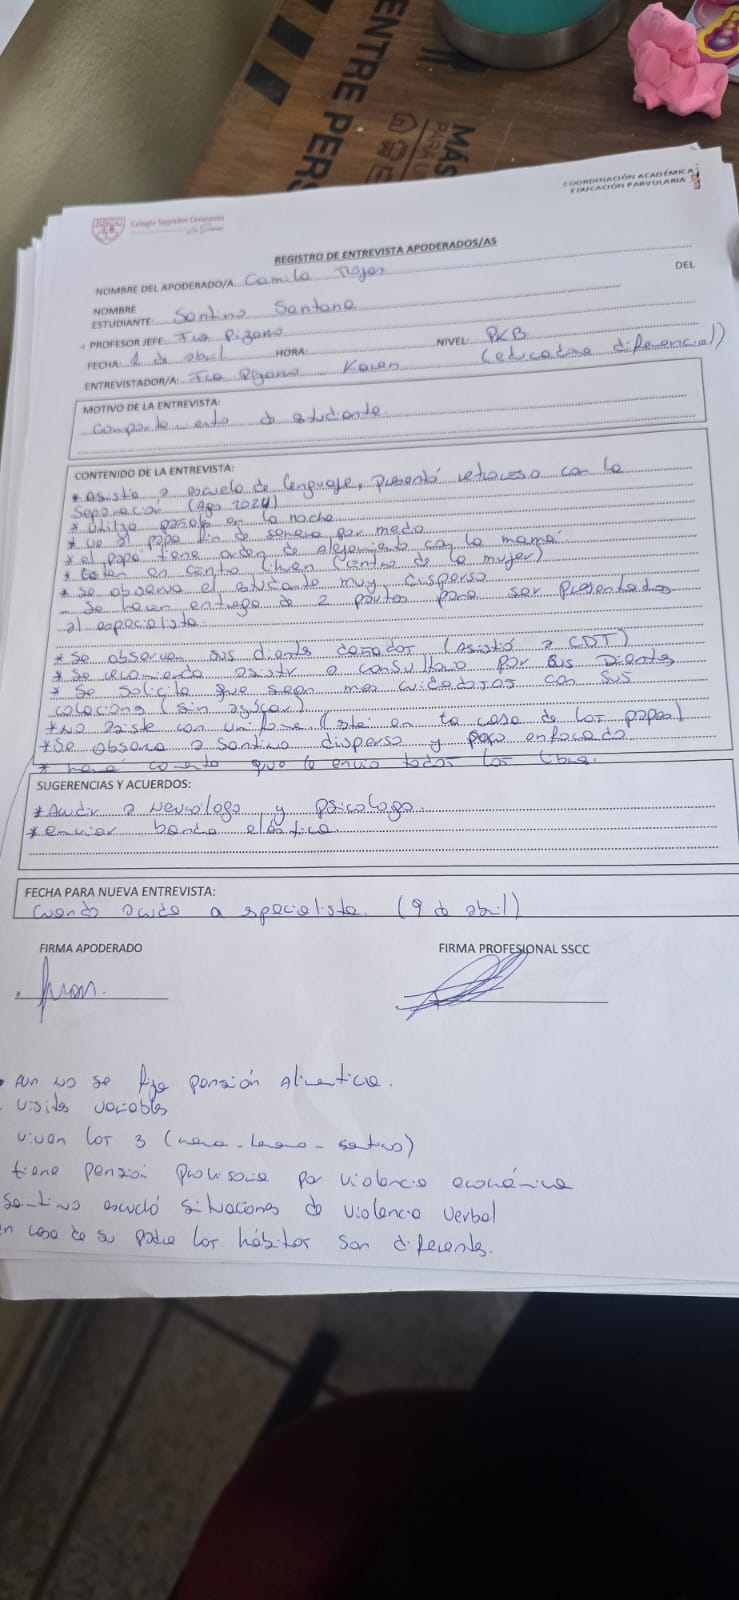 ENTRE PERS
MÁS
PARA
COORDINACIÓN ACADÉMICA
EDUCACIÓN PARVULARIA
SSCC
Colegio Sagrados Corazones
REGISTRO DE ENTREVISTA APODERADOS/AS
NOMBRE DEL APODERADO/A Camila Rojas DEL
NOMBRE
ESTUDIANTE: Santino Santana
PROFESOR JEFE: Fca Pizarro
FECHA: 1 de abril HORA: NIVEL: PKB
ENTREVISTADOR/A: Fca Pizarro Karen (educadora diferencial)
MOTIVO DE LA ENTREVISTA:
Comportamiento de estudiante.
CONTENIDO DE LA ENTREVISTA:
* Asistió a escuela de lenguaje, presentó retroceso con la
separación (Ago 2024)
* Utiliza pañal en la noche
* ve al papá fin de semana por medio
* el papá tiene orden de alejamiento con la mamá.
* Están en centro (Centro de la mujer)
* Se observa el estudiante muy disperso
- Se hacen entrega de 2 pautas para ser presentadas
al especialista.
* Se observan sus dientes dañados (Asistió a CDT)
* Se recomienda asistir a consultorio por sus dientes
* Se solicita que sean más cuidadosos con sus
colaciones (sin azúcar)
* No asiste con uniforme (está en la casa de los papas)
* Se observa a Santino disperso y poco enfocado.
* comenta que lo envía todos los
SUGERENCIAS Y ACUERDOS:
* Acudir a Neurólogo y psicólogo.
* enviar banda elástica.
FECHA PARA NUEVA ENTREVISTA:
Cuando acuda a especialista. (9 de abril)
FIRMA APODERADO FIRMA PROFESIONAL SSCC
• Aun no se fija pensión alimenticia.
- visitas variables
viven los 3 (santino)
tiene pensión provisoria por violencia económica
Santino escuchó situaciones de violencia verbal
en casa de su padre los hábitos son diferentes.